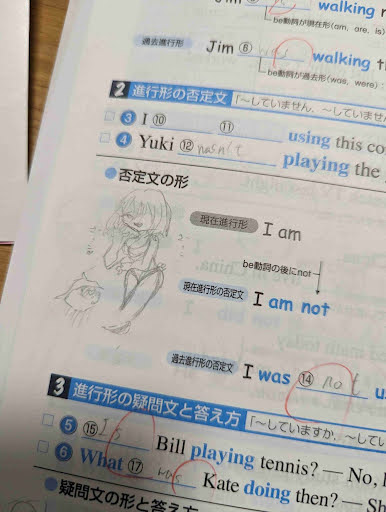 walking
be動詞が現在形(am, are, is)
過去進行形 Jim ⑥ was walking
be動詞が過去形(was, were)
2 進行形の否定文 「~していません、~していませ
③ I ⑩ ⑪ using this co
④ Yuki ⑫ wasn't playing the
●否定文の形
現在進行形 I am
be動詞の後にnot
現在進行形の否定文 I am not
過去進行形の否定文 I was ⑭ not u
3 進行形の疑問文と答え方 「~していますか、~してい
⑤ ⑮ Is Bill playing tennis? — No,
⑥ What ⑰ was Kate doing then? — Sh
●疑問文の形と答え方